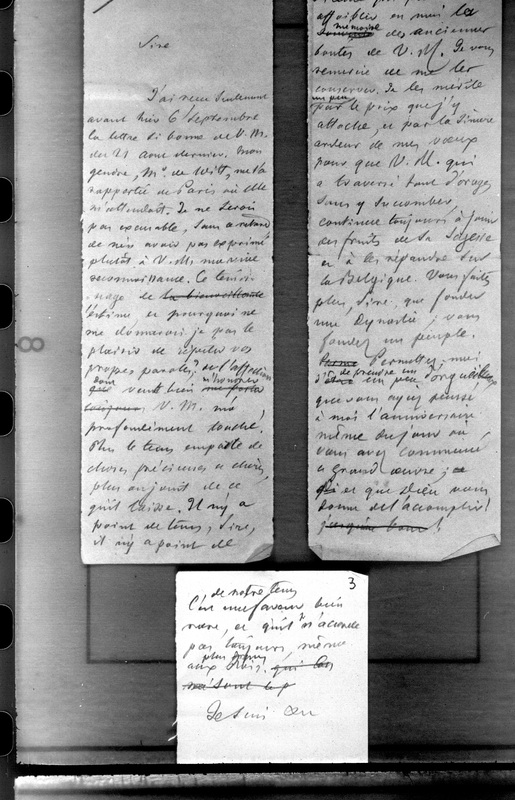 Sire
J'ai reçu seulement
avant hier 6 Septembre
la lettre si bonne de V. M.
du 21 aout dernier. Mon
gendre, Mr. de Witt, me l'a
rapportée de Paris où elle
m'attendait. Je ne serois
pas excusable, Sans ce retard
de n'en avoir pas exprimé
plutôt à V. M. ma vive
reconnoissance. Ce témoi-
nage de la bienveillante
l'estime, et pourquoi ne
me donnerai je pas le
plaisir de répéter vos
propres paroles? de l'affection
dont veut bien m'honorer
toujours V. M. m'a
profondément touché.
Plus le tems emporte de
choses précieuses et chères,
plus on jouit de ce
qu'il laisse. Il n'y a
point de tems, Sire,
il n'y a point de
affoiblir en moi la
mémoire des anciennes
bontés de V. M. Je vous
remercie de me les
conserver. Je les mérite
un peu
par le prix que j'y
attache, et par la sincère
ardeur de mes vœux
pour que V. M. qui
a traversé tant d'orages
sans y succomber,
continue toujours à jouir
des fruits de Sa Sagesse
et à les répandre sur
la Belgique. Vous faites
plus, Sire, que fonder
une Dynastie; vous
fondez un peuple.
Permettez-moi
de prendre un
d'être un peu orgueilleux
que vous ayez pensé
à moi l'anniversaire
même du jour où
vous avez commencé
ce grand œuvre; ce
et que Dieu vous
donne de l'accomplir!
jusqu'au bout!
3
de notre tems
C'est une faveur bien
rare, et qu'il n'accorde
pas toujours, même
plus dignes
aux Rois. qui les
Je suis avec